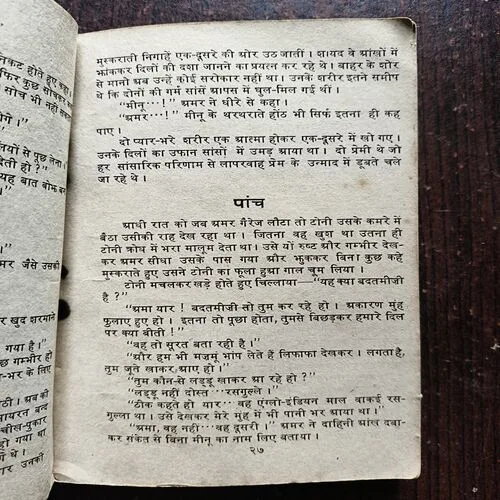 निकट होते हुए कहा।
फिर कुछ सोचकर
सोच भी नहीं सकत
गे।"
नियों से पूछ लेना।
देती हो?"
यह बात बोझ बन
मर जैसे उसकी
र खुद शरमाने
गया है।"
कुछ गम्भीर हो
-भर के लिए
ठी। अब की
पायरन बन्द
चीख-पुकार
हो गया था
गये थे।
र उनकी
मुस्कराती निगाहें एक-दूसरे की ओर उठ जातीं। शायद वे आंखों में
झांककर दिलों की दशा जानने का प्रयत्न कर रहे थे। बाहर के शोर
से मानो अब उन्हें कोई सरोकार नहीं था। उनके शरीर इतने समीप
थे कि दोनों की गर्म सांसें आपस में घुल-मिल गई थीं।
"मीनू···!" अमर ने धीरे से कहा।
"अमर···!" मीनू के थरथराते होंठ भी सिर्फ इतना ही कह
पाए।
दो प्यार-भरे शरीर एक आत्मा होकर एक-दूसरे में खो गए।
उनके दिलों का उफान सांसों में उमड़ आया था। दो प्रेमी थे जो
हर सांसारिक परिणाम से लापरवाह प्रेम के उन्माद में डूबते चले
जा रहे थे।
पांच
आधी रात को जब अमर गैरेज लौटा तो टोनी उसके कमरे में
बैठा उसीकी राह देख रहा था। जितना वह खुश था उतना ही
टोनी क्रोध में भरा मालूम देता था। उसे यों रुष्ट और गम्भीर देख-
कर अमर सीधा उसके पास गया और झुककर बिना कुछ कहे
मुस्कराते हुए उसने टोनी का फूला हुआ गाल चूम लिया।
टोनी मचलकर खड़े होते हुए चिल्लाया—"यह क्या बदतमीजी
है?"
"अमा यार! बदतमीजी तो तुम कर रहे हो। अकारण मुंह
फुलाए हुए हो। इतना तो पूछा होता, तुमसे बिछड़कर हमारे दिल
पर क्या बीती!"
"वह तो सूरत बता रही है।"
"और हम भी मजमूं भांप लेते हैं लिफाफा देखकर। लगता है,
तुम जूते खाकर आए हो।"
"तुम कौन-से लड्डू खाकर आ रहे हो?"
"लड्डू नहीं दोस्त···रसगुल्ले।"
"ठीक कहते हो यार···वह एंग्लो-इंडियन माल वाकई रस-
गुल्ला था। उसे देखकर मेरे मुंह में भी पानी भर आया था।"
"अमा, वह नहीं···वह दूसरी।" अमर ने दाहिनी आंख दबा-
कर संकेत से बिना मीनू का नाम लिए बताया।
२७